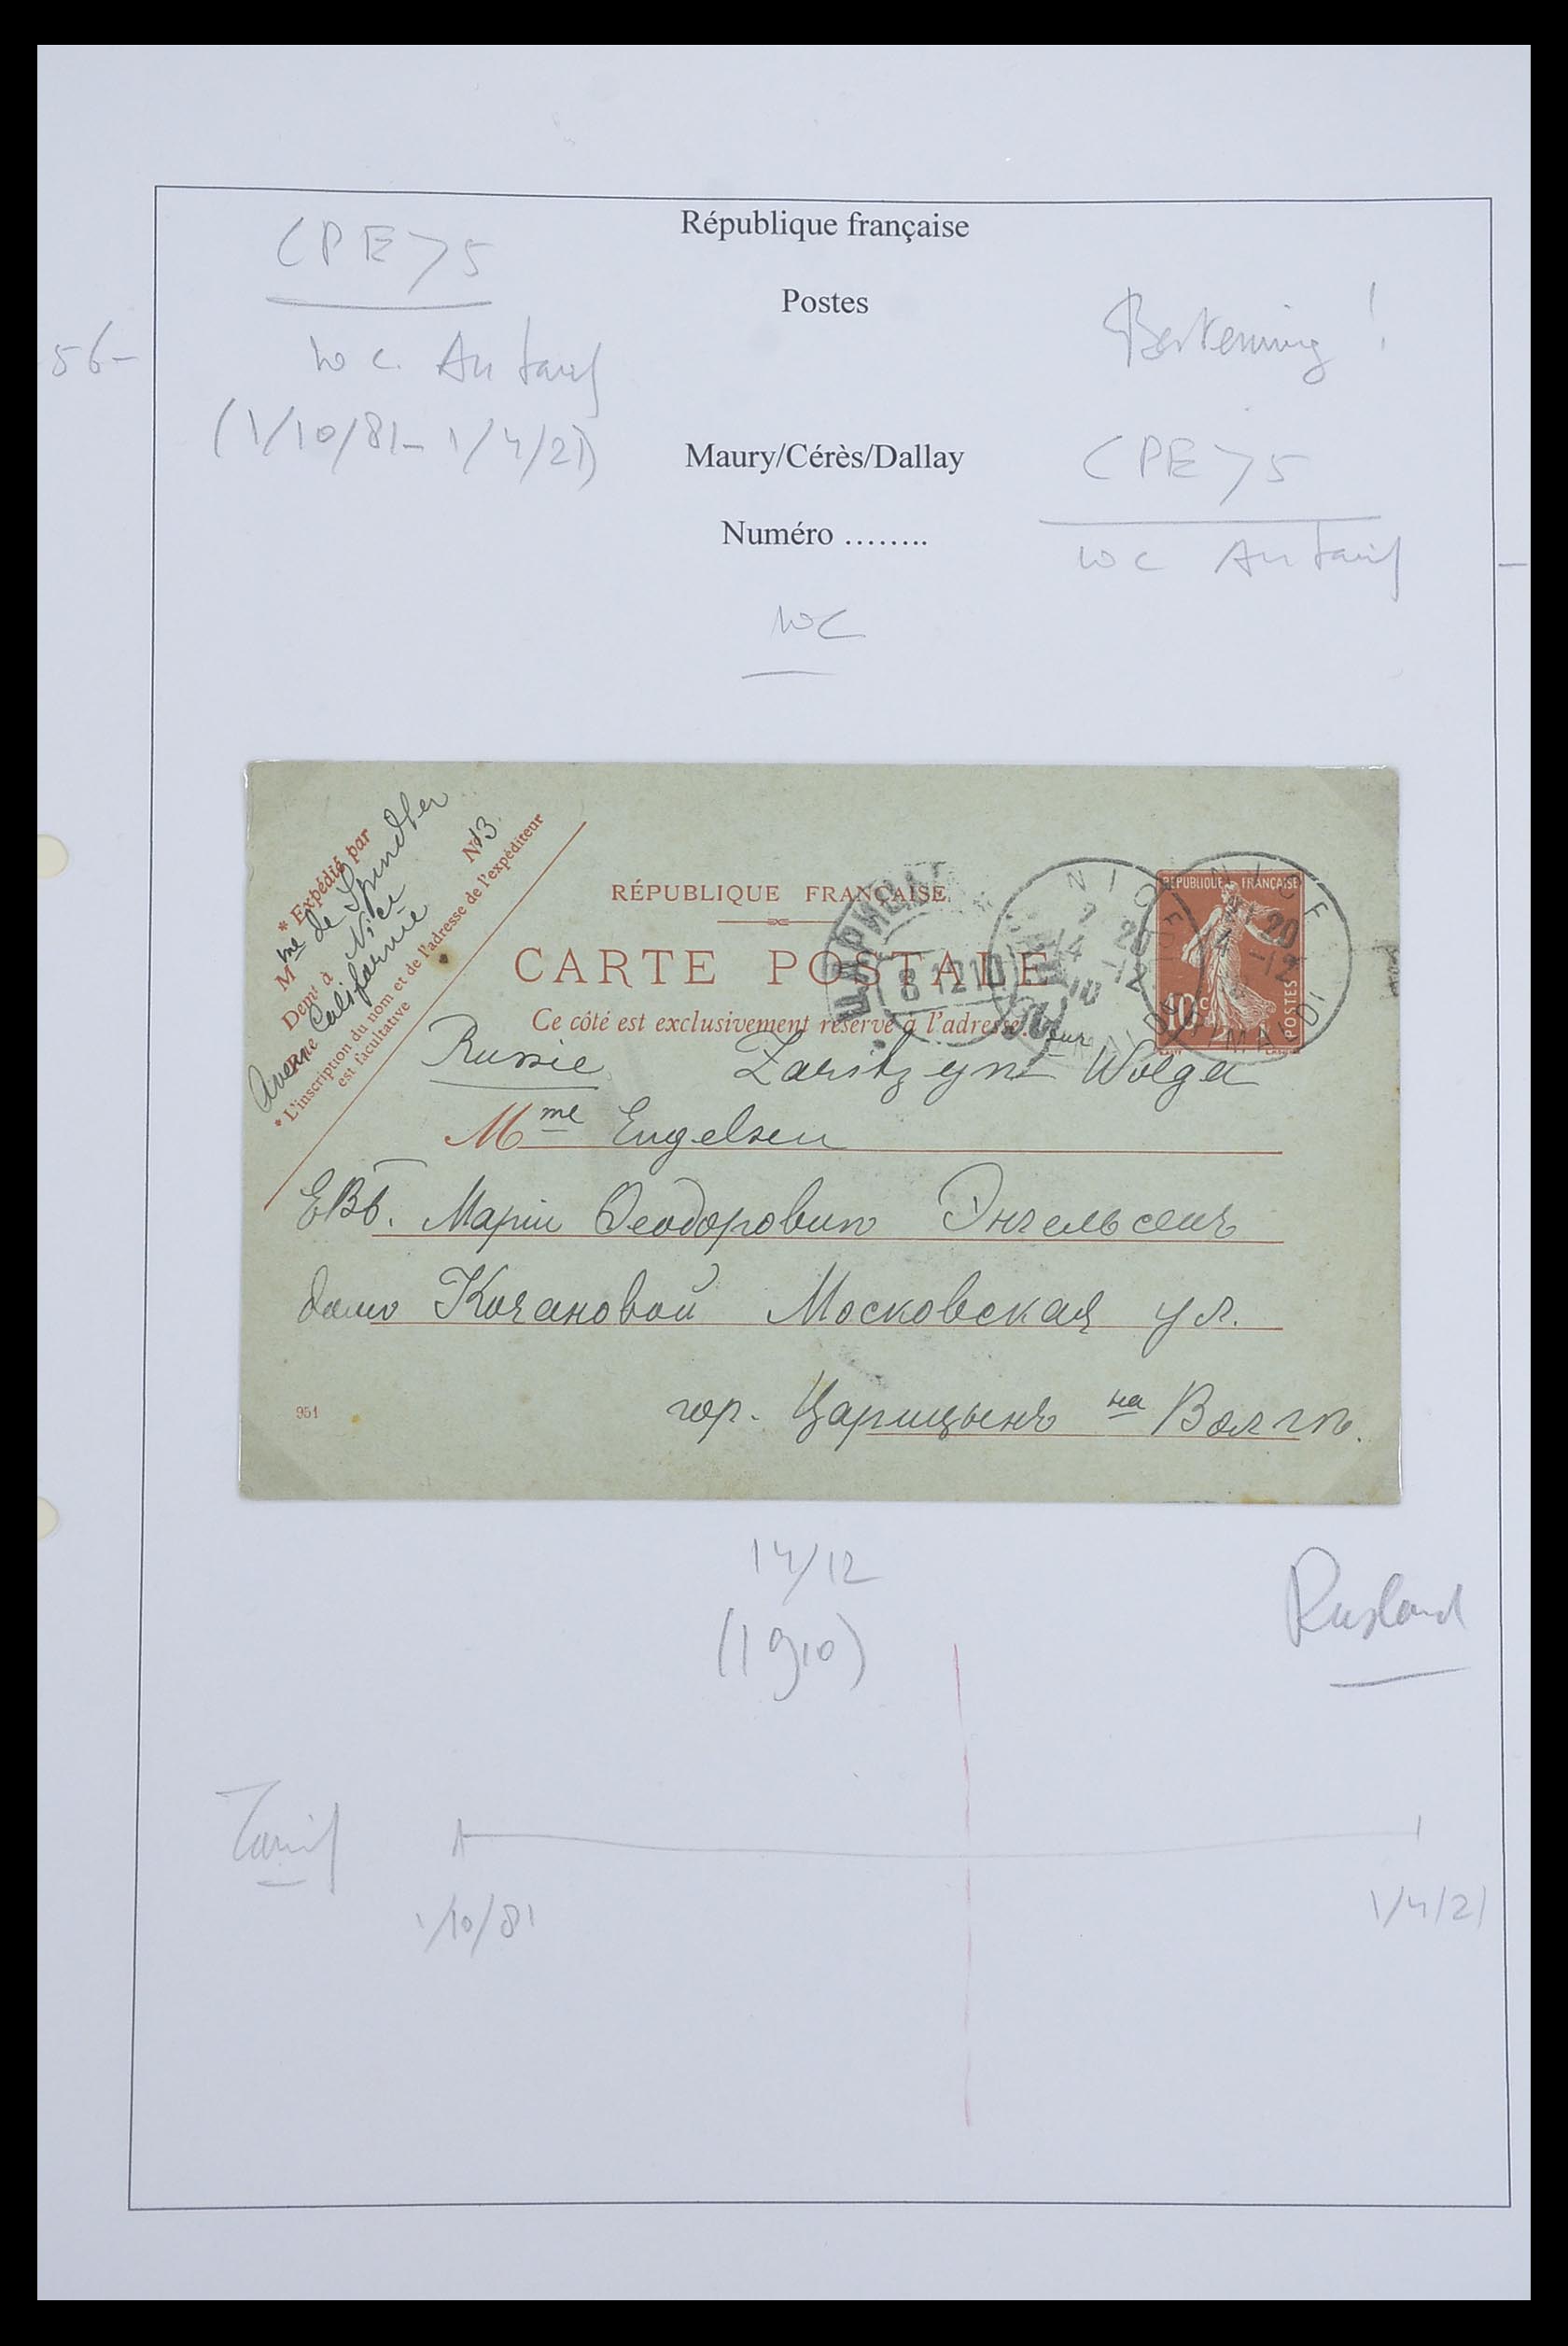 République française
CPE75
Postes
56-
Au tarif
(1/10/81 - 1/4/21)
Maury/Cérès/Dallay
CPE75
Numéro ........
Au tarif
* Expédié par
Mme de Spindler
Demt à Nice
Avenue Californie No 3
* L'inscription du nom et de l'adresse de l'expéditeur
est facultative
RÉPUBLIQUE FRANÇAISE
CARTE POSTALE
Ce côté est exclusivement réservé à l'adresse.
REPUBLIQUE FRANÇAISE
10c
POSTES
NICE
7 20
14 -12
10
NICE
20
ЦАРИЦЫН
8 12 10
Russie Zaritzyne sur Wolga
Mme Engelsen
ЕВб. Маріи Ѳеодоровнѣ Энгельсенъ
домъ Кочановой Московская ул.
гор. Царицынъ на Волгѣ.
951
14/12
(1910)
Rusland
Tarif
1/10/81
1/4/21